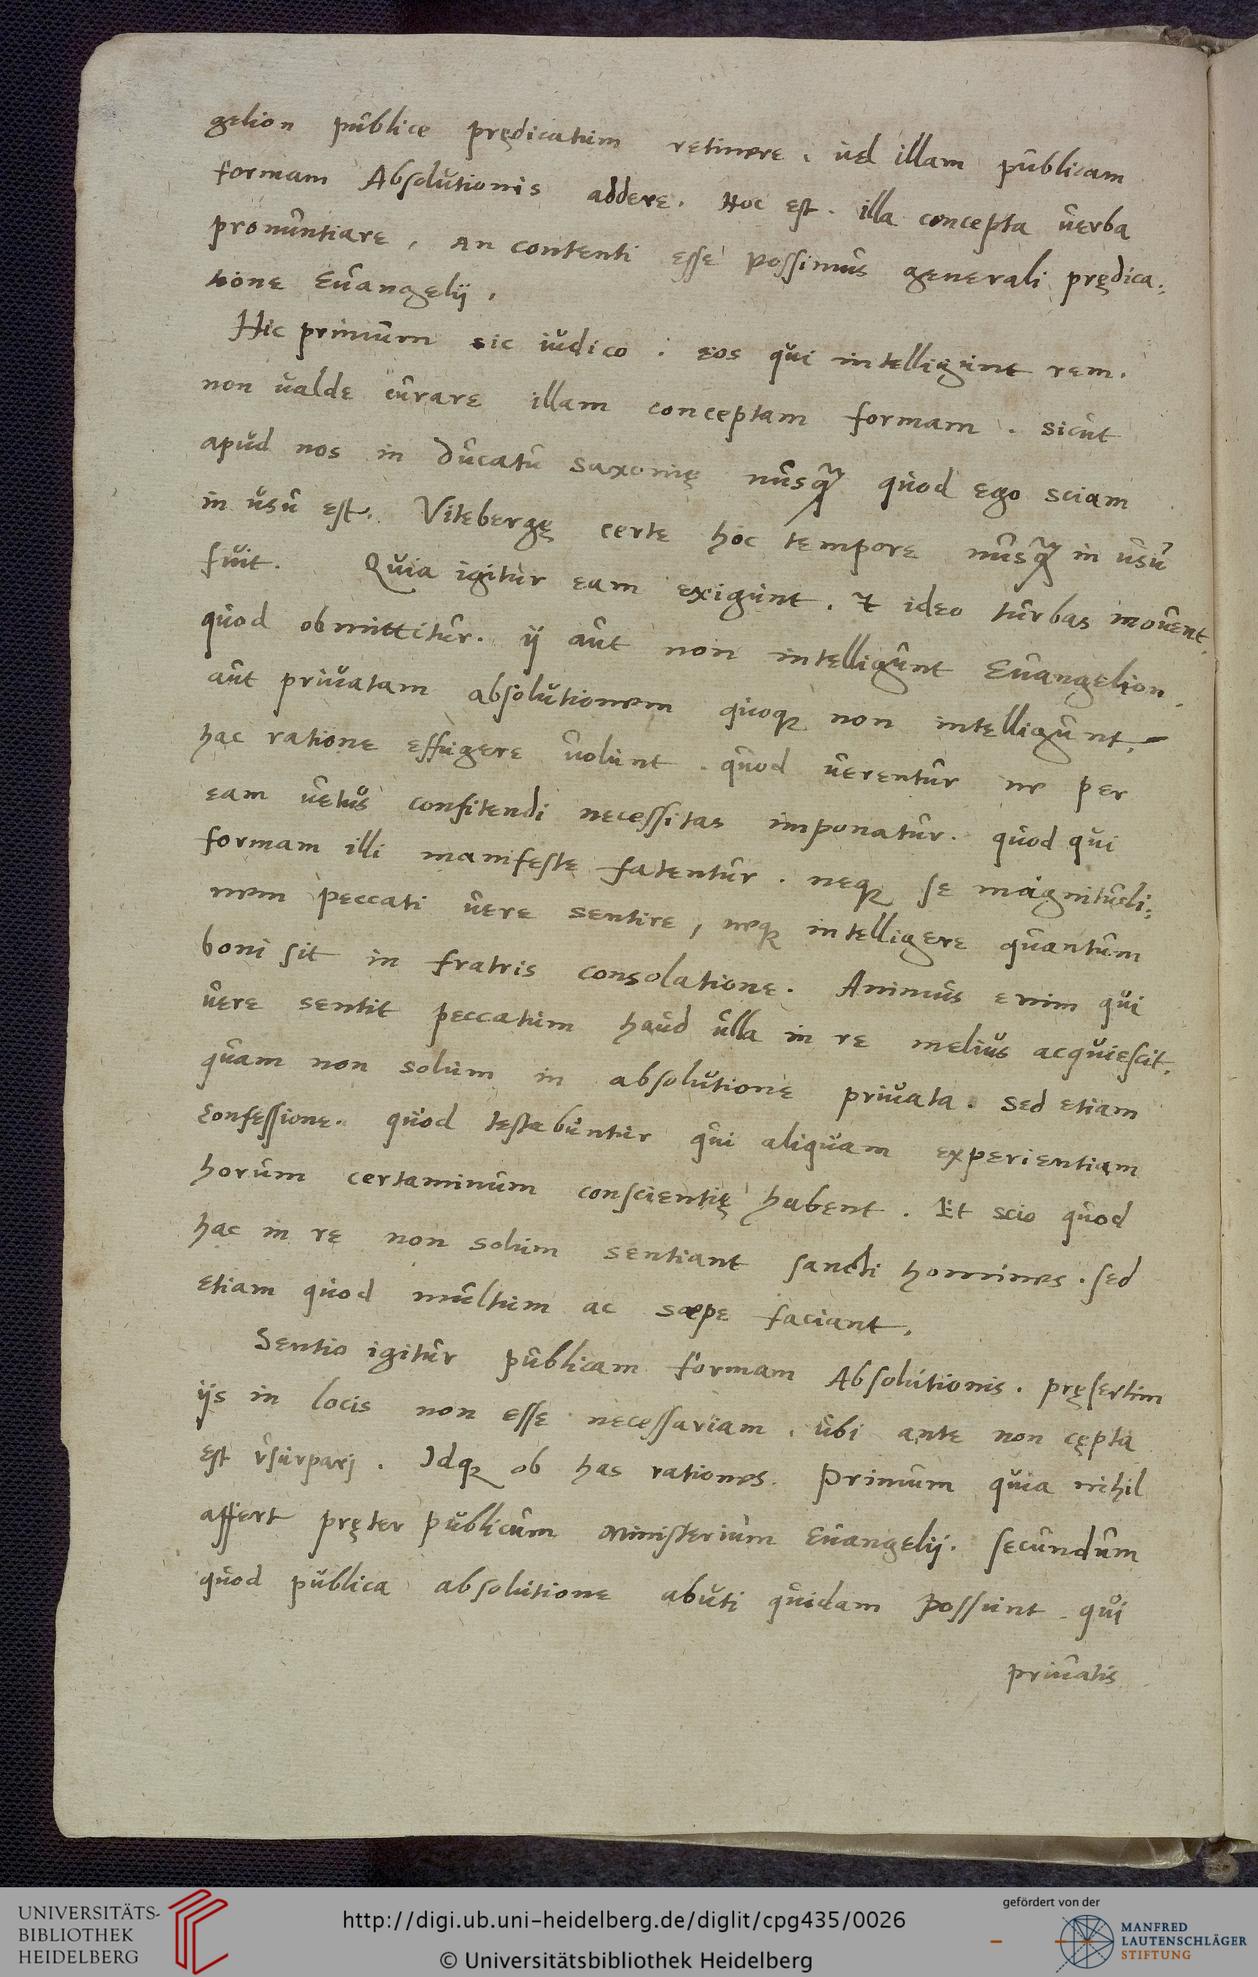 gelion publice prędicatum retinere, uel illam publicam
formam Absolutionis addere. Hoc est. illa concepta uerba
pronuntiare, an contenti esse possimus generali prędica:
tione Euangelij,
Hic primum sic iudico: eos qui intelligunt rem.
non ualde curare illam conceptam formam. sicut
apud nos in ducatu saxonię nusq̃ quod ego sciam
in usu est. Vitebergę certe hoc tempore nusq̃ in usu
fuit. Quia igitur eam exigunt. & ideo turbas mouent,
quod obmittitur. ij aut non intelligunt Euangelion,
aut priuatam absolutionem quoq; non intelligunt,
hac ratione effugere uolunt. quod uerentur ne per
eam uetus confitendi necessitas imponatur. quod qui
formam illi manifeste fatentur. neq; se magnitudi:
nem peccati uere sentire, neq; intelligere quantum
boni sit in fratris consolatione. Animus enim qui
uere sentit peccatum haud ulla in re melius acquiescit,
quam non solum in absolutione priuata. sed etiam
confessione. quod testabuntur qui aliquam experientiam
horum certaminum conscientię habent. Et scio quod
hac in re non solum sentiant sancti homines. sed
etiam quod multum ac sæpe faciant.
Sentio igitur publicam formam Absolutionis. pręsertim
ijs in locis non esse necessariam, ubi ante non cępta
est vsurparj. Idq; ob has rationes. Primum quia nihil
affert pręter publicum ministerium Euangelij. secundum
quod publica absolutione abuti quidam possunt. qui
priuatis
UNIVERSITÄTS-
BIBLIOTHEK
HEIDELBERG
http://digi.ub.uni-heidelberg.de/diglit/cpg435/0026
© Universitätsbibliothek Heidelberg
gefördert von der
MANFRED
LAUTENSCHLÄGER
STIFTUNG